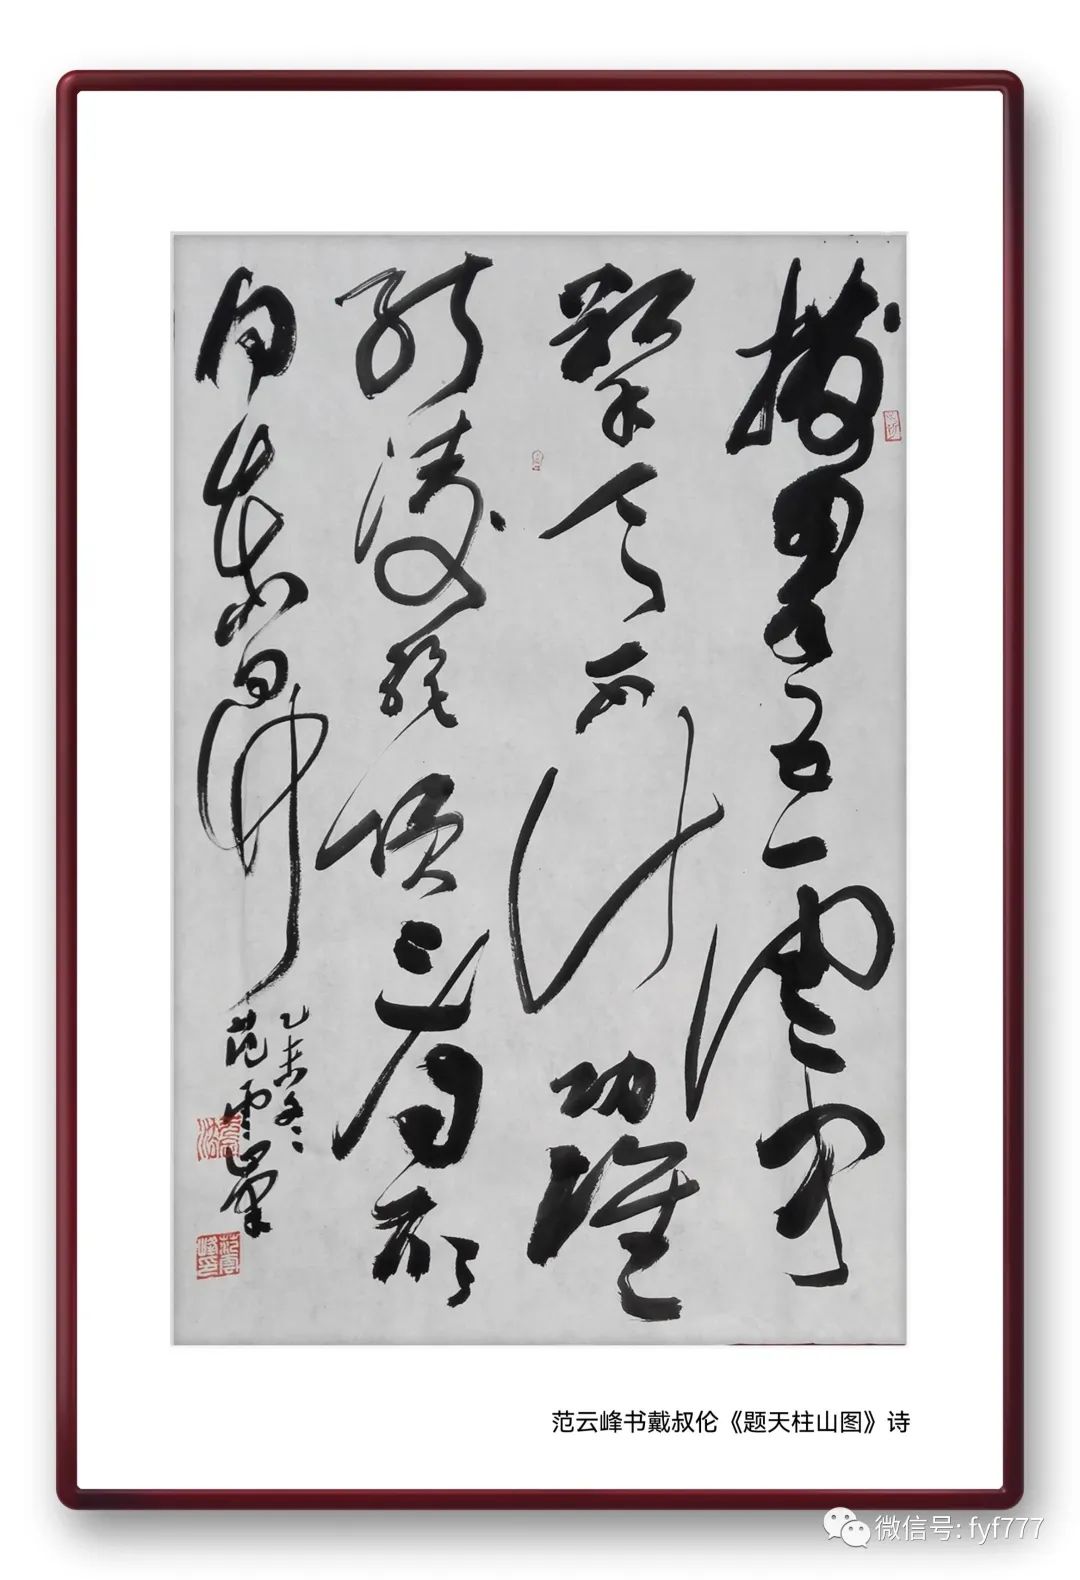 拔翠五雲中
擎天不计功誰
能凌绝顶看
乙未冬
范雲峯
范云峰书戴叔伦《题天柱山图》诗
微信号: fyf777